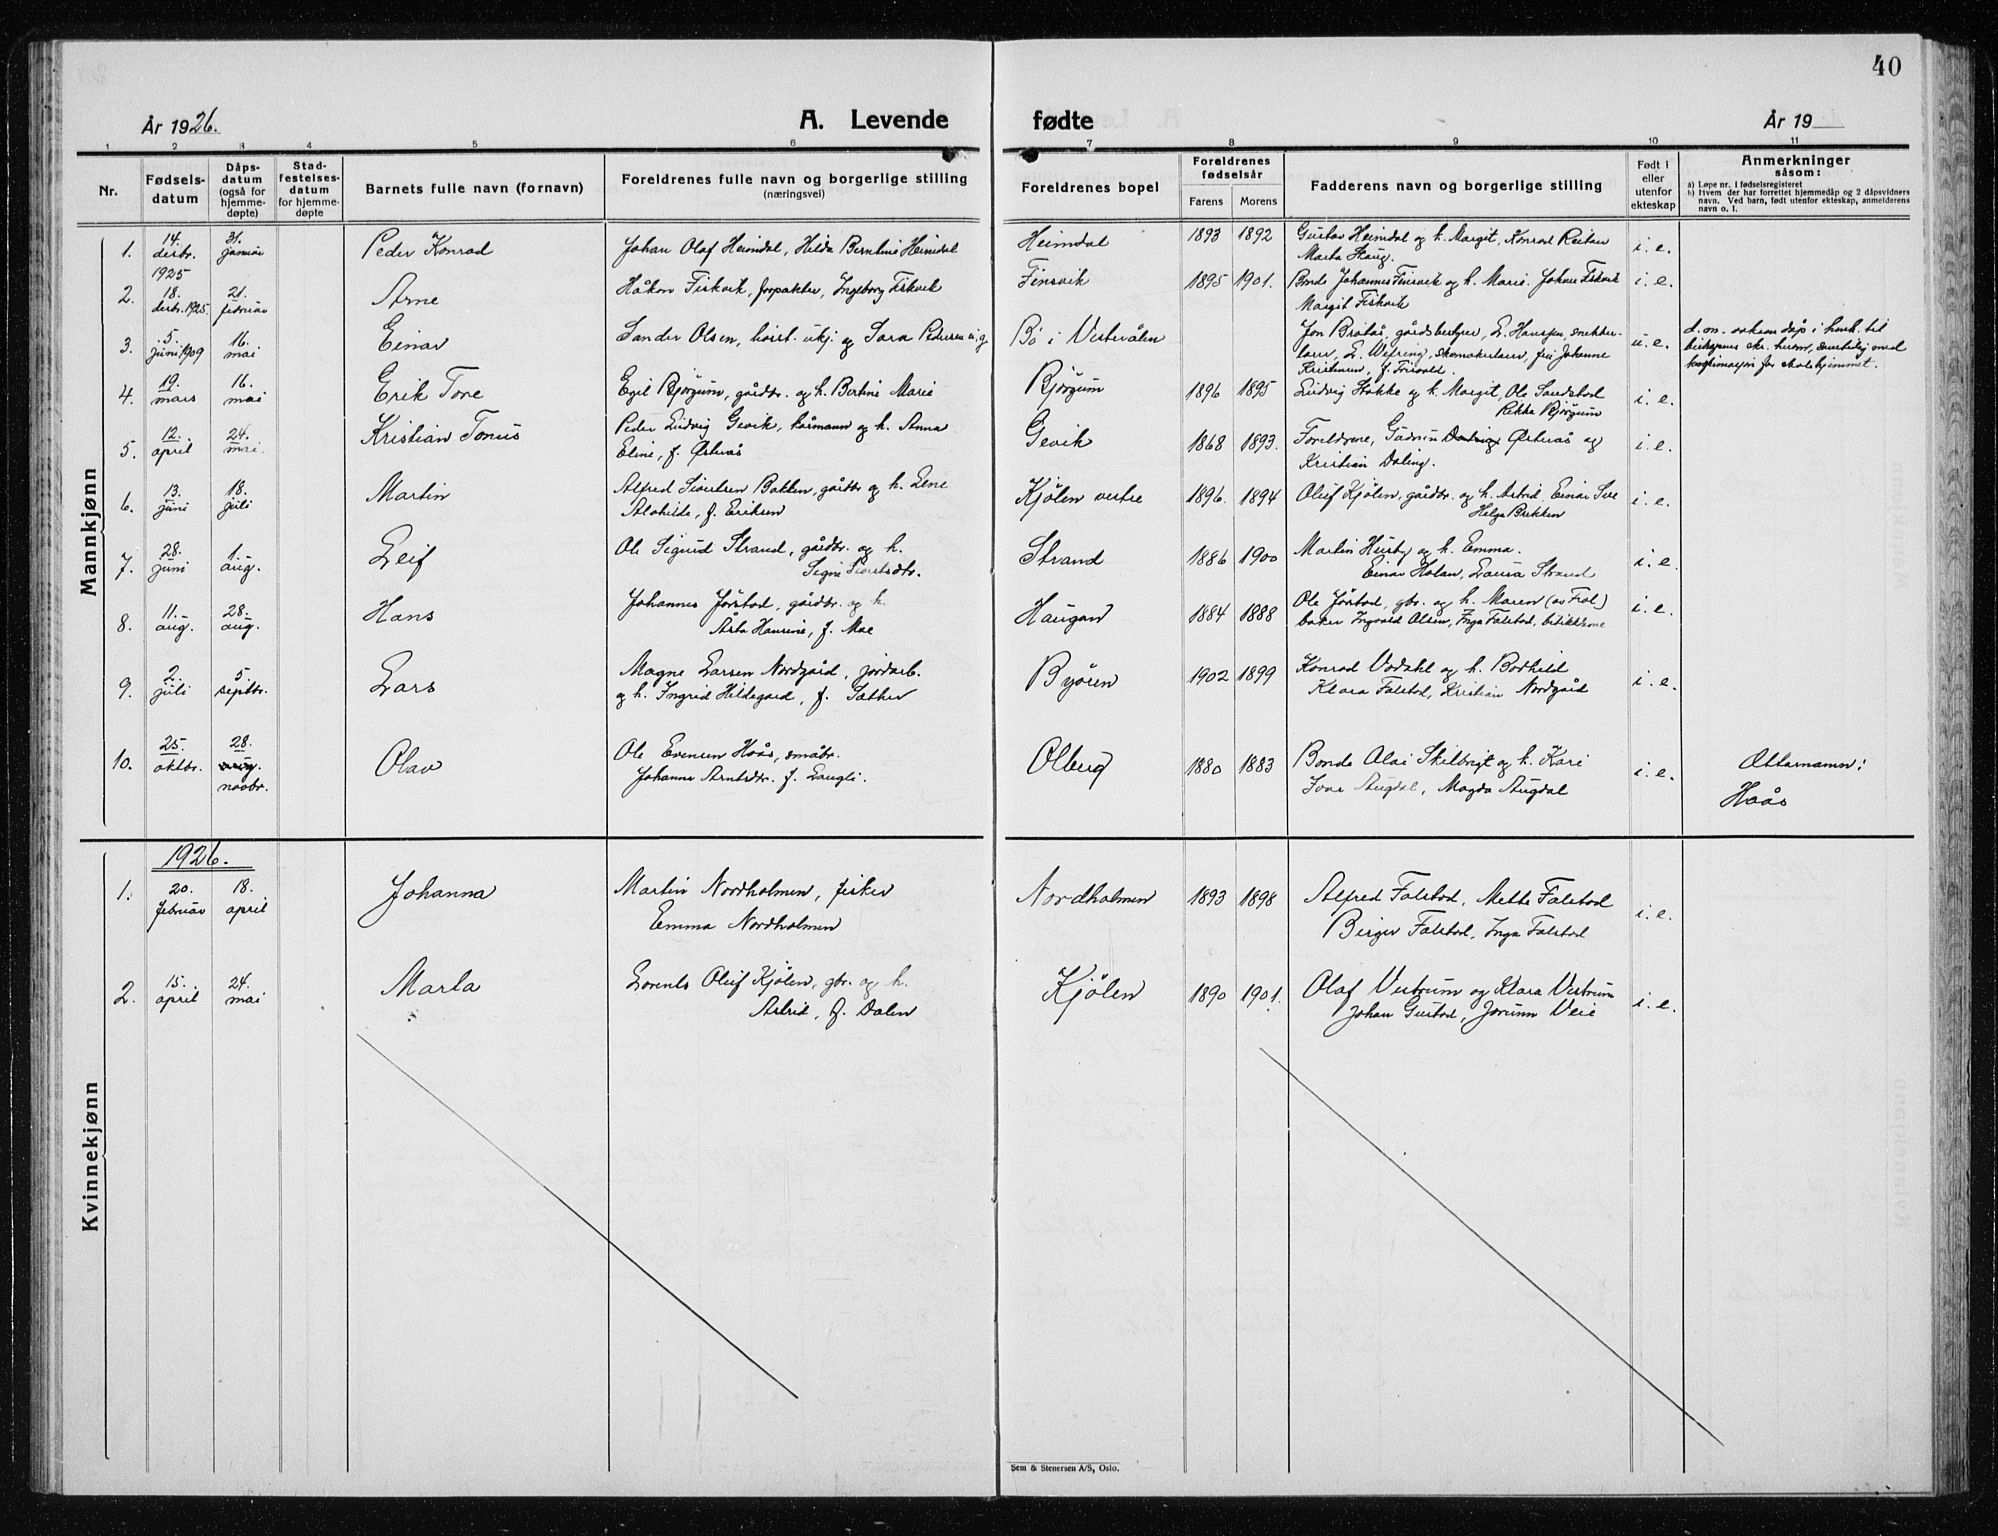 40
År 1926.
A. Levende fødte
År 19
1 2 3 4 5 6 7 8 9 10 11
Nr.
Fødsels-
datum
Dåps-
datum
(også for
hjemme-
døpte)
Stad-
festelses-
datum
for hjemme-
døpte
Barnets fulle navn (fornavn)
Foreldrenes fulle navn og borgerlige stilling
(næringsvei)
Foreldrenes bopel
Foreldrenes
fødselsår
Farens Morens
Fadderens navn og borgerlige stilling
Født i
eller
utenfor
ekteskap
Anmerkninger
såsom:
a) Løpe nr. i fødselsregisteret
b) Hvem der har forrettet hjemmedåp og 2 dåpsvidners
navn. Ved barn, født utenfor ekteskap, anmelderens
navn o. l.
Mannkjønn
1. 14. desbr. 1925 31. januar Peder Konrad Johan Olaf Heimdal, Hilda Berntine Heimdal Heimdal 1893 1892 Gustav Heimdal og h. Margit, Konrad Reitan
Marta Haug. i. e.
2. 18. desbr. 1925. 21. februar Arne Håkon Fiskvik, forpakter, Ingeborg Fiskvik Finsvik 1895 1901. Bonde Johannes Finsvik og h. Marie. Johan Fiskvik
Margit Fiskvik i. e.
3. 5. juni 1909 16. mai Einar Sander Olsen, ukj. og Sara Pedersen Bø i Vesterålen Jon Bratås, gårdsbestyrer, L. Hanssen, snekker-
lærer, L. Wefring, skomakerlærer, frü Johanne
Kristiansen, f. Frisvold. u. e. dåp i henh. til
konfirmasjon for skolehjemmet.
4. 19. mars 16. mai Erik Tore Egil Bjørgum, gårdbr. og h. Bertine Marie Bjørgum 1896 1895 Ludvig Stokke og h. Margit, Ole Sandstad
Rikka Bjørgum i. e.
5. 12. april 24. mai. Kristian Tonus Peder Ludvig Gevik, kårmann og h. Anna
Eline, f. Østerås Gevik 1868 1893. Foreldrene, Gudrun Østerås og
Kristian Daling. i. e.
6. 13. juni 18. juli Martin Alfred Sivertsen Bakken, gårdbr og h. Lene
Alohilde, f. Eriksen Kjølen vestre 1896. 1894 Oluf Kjølen, gårdbr. og h. Astrid, Einar Sve
Helga Brekken i. e.
7. 28. juni 1. aug. Leif Ole Sigurd Strand, gårdbr. og h.
Signe Sivertsdtr. Strand 1886 1900 Martin Husby og h. Emma.
Einar Holan, Laura Strand i. e.
8. 11. aug. 28. aug. Hans Johannes Jørstad, gårdbr. og h.
Åsta Hansine, f. Moe Haugan 1884 1888 Ole Jørstad, gbr. og h. Maren (av Frol)
baker Ingvald Olsen, Inga Falstad, butikkdame i. e.
9. 2. juli 5. septbr. Lars Magne Larsen Nordgård, jordarb.
og h. Ingrid Hildegard, f. Sæther Byåren 1902 1899 Konrad Vådahl og h. Bodhild
Klara Falstad, Kristian Nordgård i. e.
10. 25. oktbr. 28. aug. novbr. Olav Ole Evensen Haås, småbr.
Johanna Arntsdtr. f. Langli. Olberg 1880 1883 Bonde Olai Skilbrigt og h. Kari
Ivar Augdal, Magda Augdal i. e. Ættarnamn:
Haås
Kvinnekjønn
1926.
1. 20. februar 18. april Johanna Martin Nordholmen, fisker
Emma Nordholmen Nordholmen 1893 1898 Alfred Falstad, Mette Falstad
Birger Falstad, Inga Falstad i. e.
2. 15. april 24. mai Marta Lorents Oluf Kjølen, gbr. og h.
Astrid, f. Dalen Kjølen 1890 1901. Olaf Vestrum og Klara Vestrum
Johan Gustad, Jorunn Veie i. e.
Sem & Stenersen A/S, Oslo.